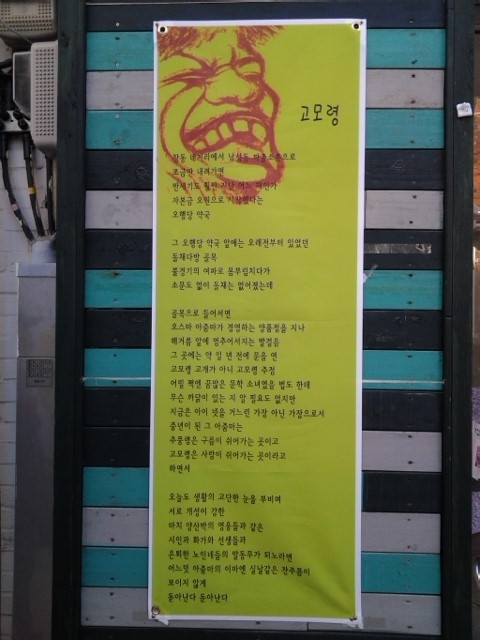 고모령
네거리에서
조금만 내려가면
반세기도 훨씬 지난 어느
자본금 오원으로 시작했다는
오행당 약국
그 오행당 약국 앞에는 오래전부터 있었던
돌체다방 골목
불경기의 여파로 몸부림치다가
소문도 없이 돌체는 없어졌는데
골목으로 들어서면
오스바 아줌마가 경영하는 양품점을 지나
해거름 앞에 멈추어서지는 발걸음
그 곳에는 약 일 년 전에 문을 연
고모령 고개가 아니 고모령 주점
어릴 쩍엔 꿈많은 문학 소녀였을 법도 한데
무슨 까닭이 있는 지 알 필요도 없지만
지금은 아이 넷을 거느린 가장 아닌 가장으로서
중년이 된 그 아줌마는
추풍령은 구름이 쉬어가는 곳이고
고모령은 사람이 쉬어가는 곳이라고
하면서
오늘도 생활의 고단한 눈을 부비며
서로 개성이 강한
마치 양산박의 영웅들과 같은
시인과 화가와 선생들과
은퇴한 노인네들의 말동무가 되노라면
어느덧 아줌마의 이마엔 실낱같은 잔주름이
보이지 않게
돋아난다 돋아난다